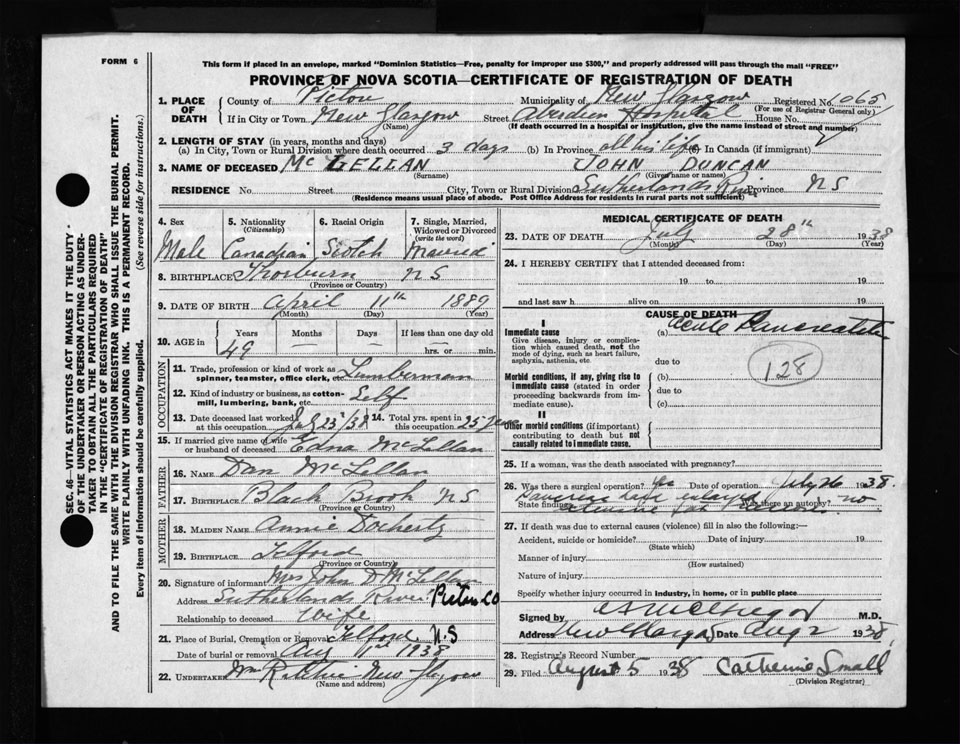 FORM 6
This form if placed in an envelope, marked "Dominion Statistics—Free, penalty for improper use $300," and properly addressed will pass through the mail "FREE"
PROVINCE OF NOVA SCOTIA—CERTIFICATE OF REGISTRATION OF DEATH
1. PLACE OF DEATH County of Pictou Municipality of New Glasgow Registered No. 1065
(For use of Registrar General only)
If in City or Town New Glasgow Street Aberdeen Hospital House No.
(Name) (If death occurred in a hospital or institution, give the name instead of street and number)
2. LENGTH OF STAY (in years, months and days)
(a) In City, Town or Rural Division where death occurred 3 days (b) In Province all his life (c) In Canada (if immigrant)
3. NAME OF DECEASED McLELLAN JOHN DUNCAN
(Surname) (Given name or names)
RESIDENCE No. Street City, Town or Rural Division Sutherlands River Province NS
(Residence means usual place of abode. Post Office Address for residents in rural parts not sufficient)
4. Sex 5. Nationality 6. Racial Origin 7. Single, Married, Widowed or Divorced
(Citizenship) (write the word)
Male Canadian Scotch Married
8. BIRTHPLACE Thorburn NS
(Province or Country)
9. DATE OF BIRTH April 11th 1889
(Month) (Day) (Year)
10. AGE in Years Months Days If less than one day old
49 — — hrs. or min.
OCCUPATION
11. Trade, profession or kind of work as spinner, teamster, office clerk, etc. Lumberman
12. Kind of industry or business, as cotton-mill, lumbering, bank, etc. Self
13. Date deceased last worked at this occupation July 25/38 14. Total yrs. spent in this occupation 25 years
15. If married give name of wife or husband of deceased Edna McLellan
FATHER
16. NAME Dan McLellan
17. BIRTHPLACE Black Brook NS
(Province or Country)
MOTHER
18. MAIDEN NAME Annie Docherty
19. BIRTHPLACE Telford
(Province or Country)
20. Signature of informant Mrs John D McLellan
Address Sutherlands River Pictou Co
Relationship to deceased Wife
21. Place of Burial, Cremation or Removal Telford N.S
Date of burial or removal Aug 1st 1938
22. UNDERTAKER New Glasgow
(Name and address)
MEDICAL CERTIFICATE OF DEATH
23. DATE OF DEATH July 28th 1938
(Month) (Day) (Year)
24. I HEREBY CERTIFY that I attended deceased from:
19 to 19
and last saw h alive on 19
CAUSE OF DEATH
I
Immediate cause (a) Acute Pancreatitis
Give disease, injury or complication which caused death, not the mode of dying, such as heart failure, asphyxia, asthenia, etc.
due to
128
Morbid conditions, if any, giving rise to immediate cause (stated in order proceeding backwards from immediate cause).
(b)
due to
(c)
II
Other morbid conditions (if important) contributing to death but not causally related to immediate cause.
25. If a woman, was the death associated with pregnancy?
26. Was there a surgical operation? Yes Date of operation July 26 1938.
State findings Pancreas enlarged Was there an autopsy? no
extensive fat
27. If death was due to external causes (violence) fill in also the following:—
Accident, suicide or homicide? Date of injury 19
(State which)
Manner of injury
(How sustained)
Nature of injury
Specify whether injury occurred in industry, in home, or in public place
Signed by M.D.
Address New Glasgow Date Aug 2 1938
28. Registrar's Record Number
29. Filed August 5 1938 Catherine Small
(Division Registrar)
SEC. 46—VITAL STATISTICS ACT MAKES IT THE DUTY OF THE UNDERTAKER OR PERSON ACTING AS UNDERTAKER TO OBTAIN ALL THE PARTICULARS REQUIRED IN THE "CERTIFICATE OF REGISTRATION OF DEATH"
AND TO FILE THE SAME WITH THE DIVISION REGISTRAR WHO SHALL ISSUE THE BURIAL PERMIT.
WRITE PLAINLY WITH UNFADING INK. THIS IS A PERMANENT RECORD.
Every item of information should be carefully supplied. (See reverse side for instructions.)